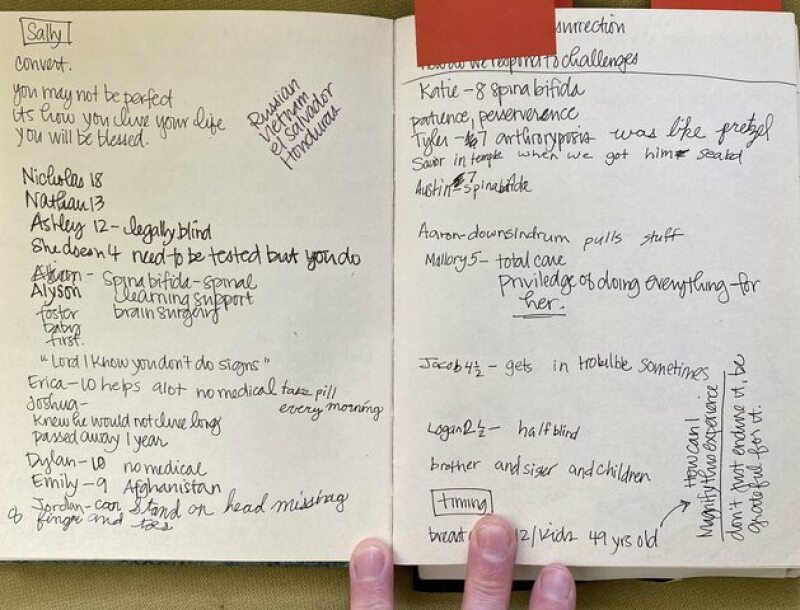 Sally
convert.
you may not be perfect
its how you live your life
you will be blessed.
Russian
Vietnam
el Salvador
Honduras
Nicholas 18
Nathan 13
Ashley 12 - legally blind
She doesn't need to be tested but you do
Alyson - Spina bifida - spinal
learning support
brain surgery
foster
baby
first.
"Lord I know you don't do signs"
Erica - 10 helps alot no medical take pill
every morning
Joshua -
knew he would not live long
passed away 1 year
Dylan - 10 no medical
Emily - 9 Afghanistan
Jordan - can stand on head missing
8 finger and toes
surrection
how do we respond to challenges
Katie - 8 spinabifida
patience, perserverence
Tyler - 7 anthryposis was like pretzel
Savior in temple when we got him seald
Austin 7 spinabifida
Aaron - downsindrum pulls stuff
Mallory 5 - total care
priviledge of doing everything for
her.
Jacob 4 1/2 - gets in trobulbe sometimes
Logan 2 1/2 - half blind
brother and sister and children
timing
breast 12/kids 49 yrs old
How can I
Magnify this experience
don't just endure it, be
grateful for it.